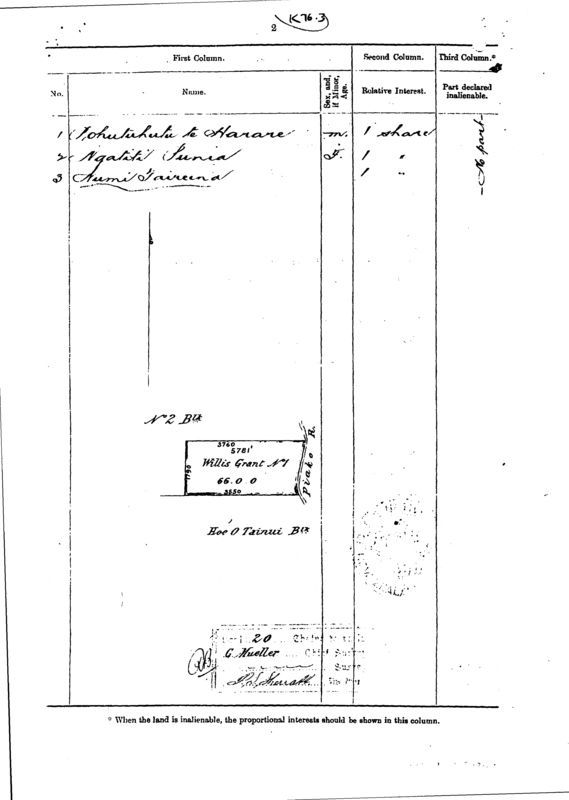 K 76.3
2
First Column.
Second Column.
Third Column.*
No.
Name.
Sex, and, if Minor, Age.
Relative Interest.
Part declared inalienable.
1 Tohutuhutu te Harare m. 1 share
2 Ngatiti Tunia F. 1 "
3 1 "
No part
No 2 Blk
3760
5781'
1790
Willis Grant No 1
66.0 0
3550
Piako R.
Hoe O Tainui Blk
20
G. Mueller
* When the land is inalienable, the proportional interests should be shown in this column.